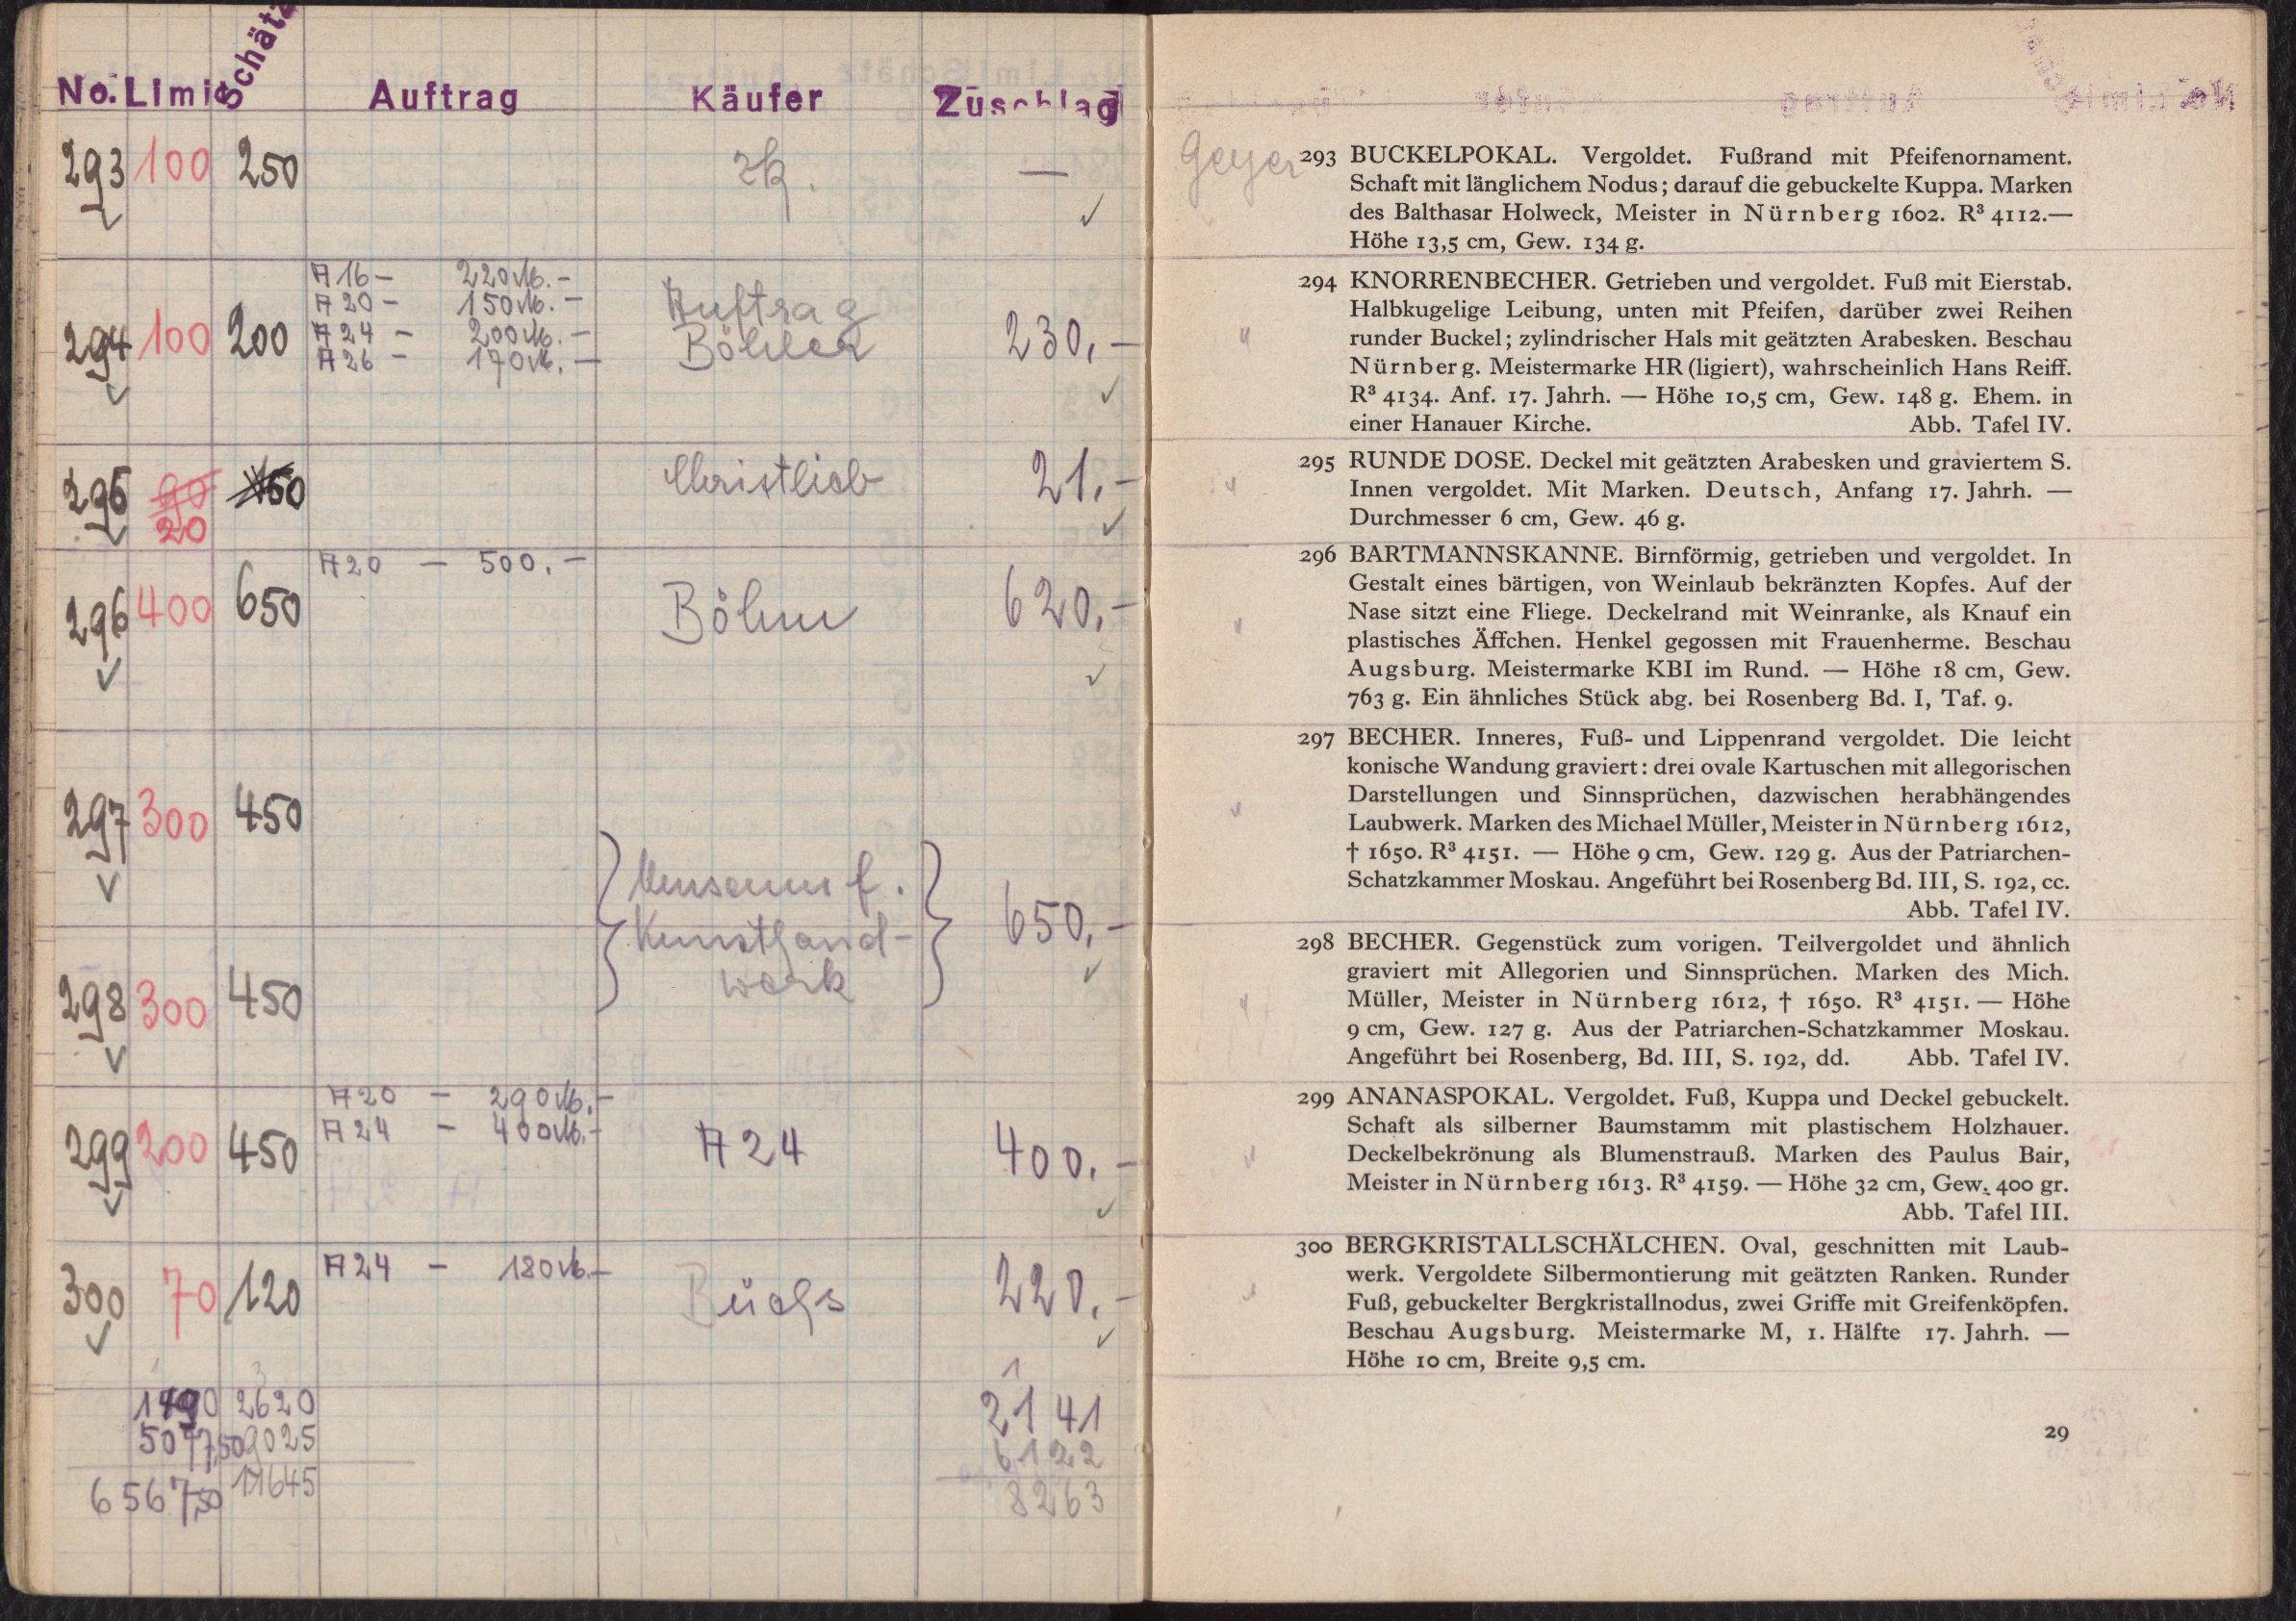 No. Limit Schätz Auftrag Käufer Zuschlag
293 100 250 zk. —
A 16 — 220 M. —
A 20 — 150 M. —
A 24 — 200 M. —
A 26 — 170 M. —
294 100 200 Auftrag Böhler 230,—
295 90 20 150 Christlieb 21,—
A 20 — 500,—
296 400 650 Böhm 620,—
297 300 450
Museum f.
Kunsthand-
werk
650,—
298 300 450
A 20 — 290 M. —
A 24 — 400 M. —
299 200 450 A 24 400,—
A 24 — 180 M. —
300 70 120 220,—
1490 2620 2141
5077,50 9025 6122
6567,50 11645 8263
Geyer
293 BUCKELPOKAL. Vergoldet. Fußrand mit Pfeifenornament.
Schaft mit länglichem Nodus; darauf die gebuckelte Kuppa. Marken
des Balthasar Holweck, Meister in Nürnberg 1602. R³ 4112.—
Höhe 13,5 cm, Gew. 134 g.
294 KNORRENBECHER. Getrieben und vergoldet. Fuß mit Eierstab.
Halbkugelige Leibung, unten mit Pfeifen, darüber zwei Reihen
runder Buckel; zylindrischer Hals mit geätzten Arabesken. Beschau
Nürnberg. Meistermarke HR (ligiert), wahrscheinlich Hans Reiff.
R³ 4134. Anf. 17. Jahrh. — Höhe 10,5 cm, Gew. 148 g. Ehem. in
einer Hanauer Kirche. Abb. Tafel IV.
295 RUNDE DOSE. Deckel mit geätzten Arabesken und graviertem S.
Innen vergoldet. Mit Marken. Deutsch, Anfang 17. Jahrh. —
Durchmesser 6 cm, Gew. 46 g.
296 BARTMANNSKANNE. Birnförmig, getrieben und vergoldet. In
Gestalt eines bärtigen, von Weinlaub bekränzten Kopfes. Auf der
Nase sitzt eine Fliege. Deckelrand mit Weinranke, als Knauf ein
plastisches Äffchen. Henkel gegossen mit Frauenherme. Beschau
Augsburg. Meistermarke KBI im Rund. — Höhe 18 cm, Gew.
763 g. Ein ähnliches Stück abg. bei Rosenberg Bd. I, Taf. 9.
297 BECHER. Inneres, Fuß- und Lippenrand vergoldet. Die leicht
konische Wandung graviert: drei ovale Kartuschen mit allegorischen
Darstellungen und Sinnsprüchen, dazwischen herabhängendes
Laubwerk. Marken des Michael Müller, Meister in Nürnberg 1612,
† 1650. R³ 4151. — Höhe 9 cm, Gew. 129 g. Aus der Patriarchen-
Schatzkammer Moskau. Angeführt bei Rosenberg Bd. III, S. 192, cc.
Abb. Tafel IV.
298 BECHER. Gegenstück zum vorigen. Teilvergoldet und ähnlich
graviert mit Allegorien und Sinnsprüchen. Marken des Mich.
Müller, Meister in Nürnberg 1612, † 1650. R³ 4151. — Höhe
9 cm, Gew. 127 g. Aus der Patriarchen-Schatzkammer Moskau.
Angeführt bei Rosenberg, Bd. III, S. 192, dd. Abb. Tafel IV.
299 ANANASPOKAL. Vergoldet. Fuß, Kuppa und Deckel gebuckelt.
Schaft als silberner Baumstamm mit plastischem Holzhauer.
Deckelbekrönung als Blumenstrauß. Marken des Paulus Bair,
Meister in Nürnberg 1613. R³ 4159. — Höhe 32 cm, Gew. 400 gr.
Abb. Tafel III.
300 BERGKRISTALLSCHÄLCHEN. Oval, geschnitten mit Laub-
werk. Vergoldete Silbermontierung mit geätzten Ranken. Runder
Fuß, gebuckelter Bergkristallnodus, zwei Griffe mit Greifenköpfen.
Beschau Augsburg. Meistermarke M, 1. Hälfte 17. Jahrh. —
Höhe 10 cm, Breite 9,5 cm.
29